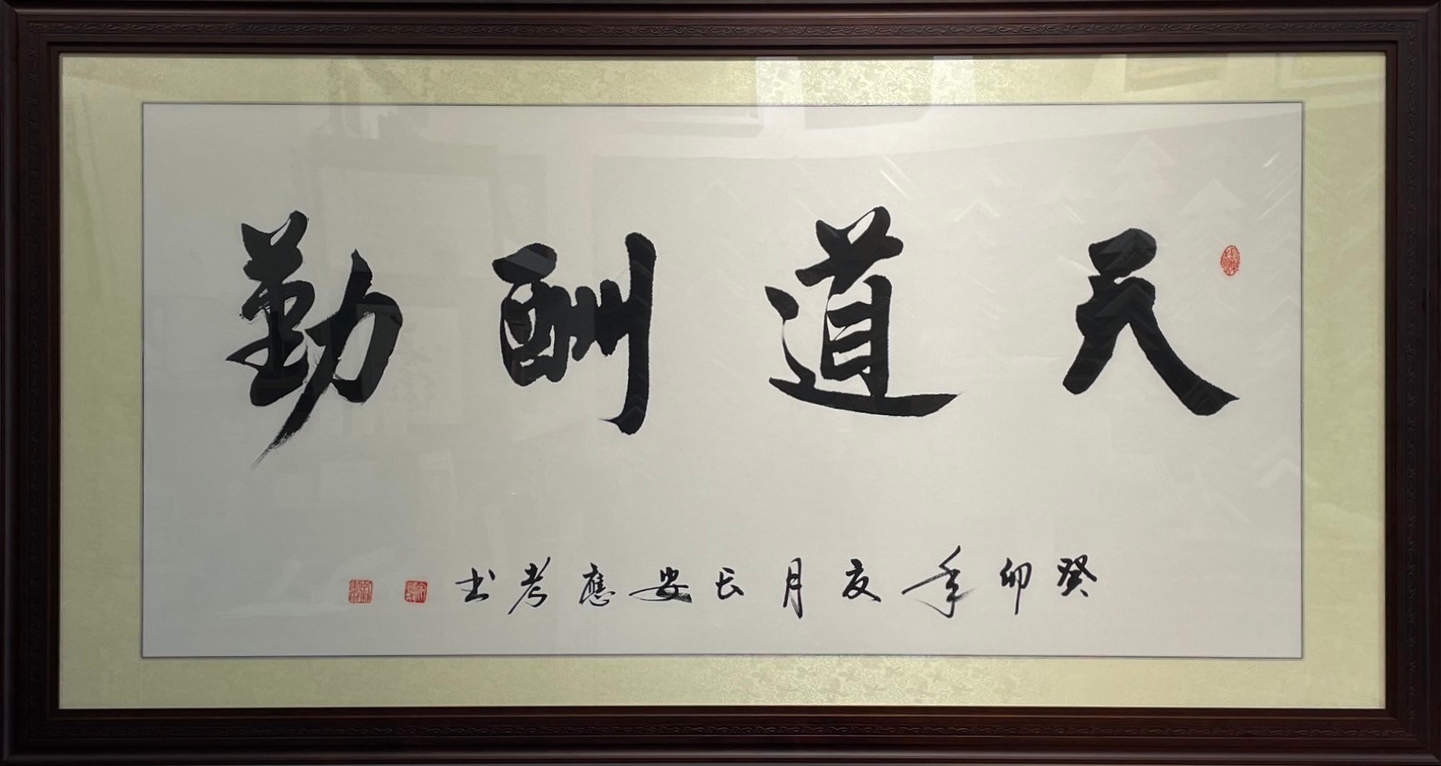 天道酬勤
癸卯年夏月长安應考书